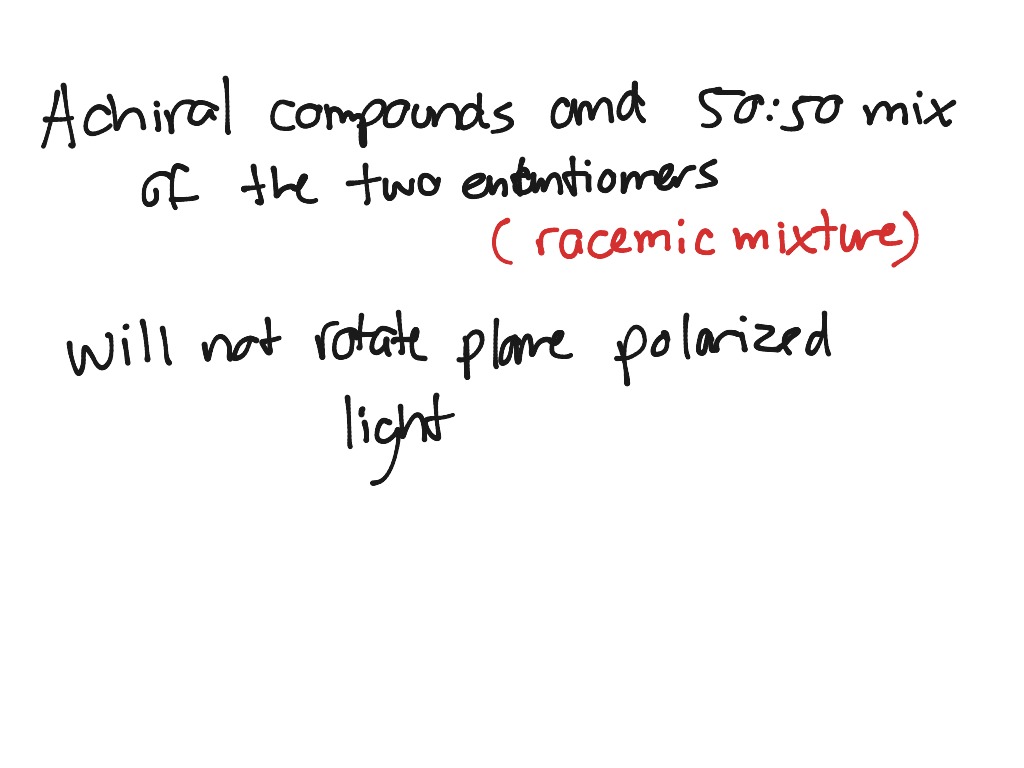 Achiral compounds and 50:50 mix
of the two enantiomers
(racemic mixture)
will not rotate plane polarized
light